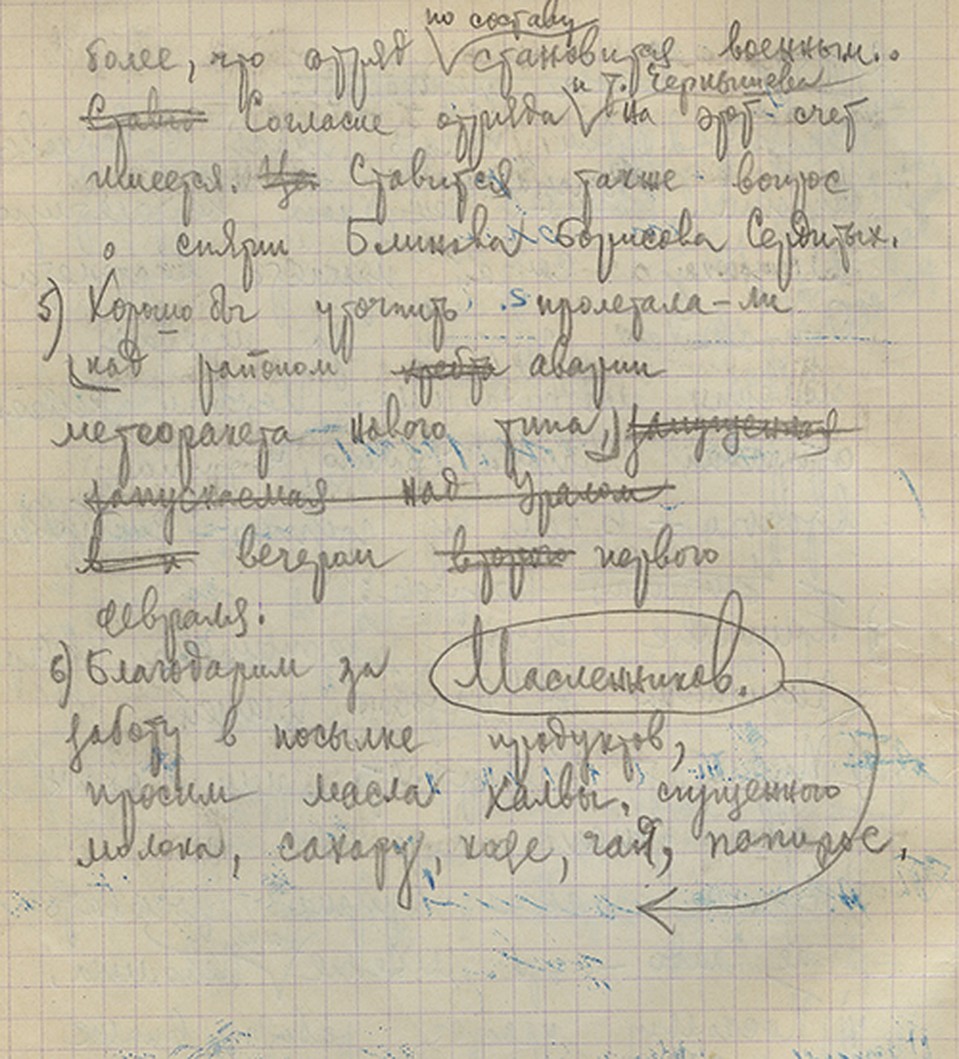 по составу
более, что отряд становится военным.
и т. Чернышева
Ставит Согласие отряда на этот счет
имеется. Ставится также вопрос
о снятии Блинова Борисова Сердитых.
5) Хорошо бы уточнить пролетала-ли
над районом аварии
метеоракета нового типа, запущенная
запускаемая над Уралом
вечером второго первого
февраля.
6) Благодарим за Масленников.
заботу в посылке продуктов,
просим масла халвы, сгущенного
молока, сахару, кофе, чай, папирос,